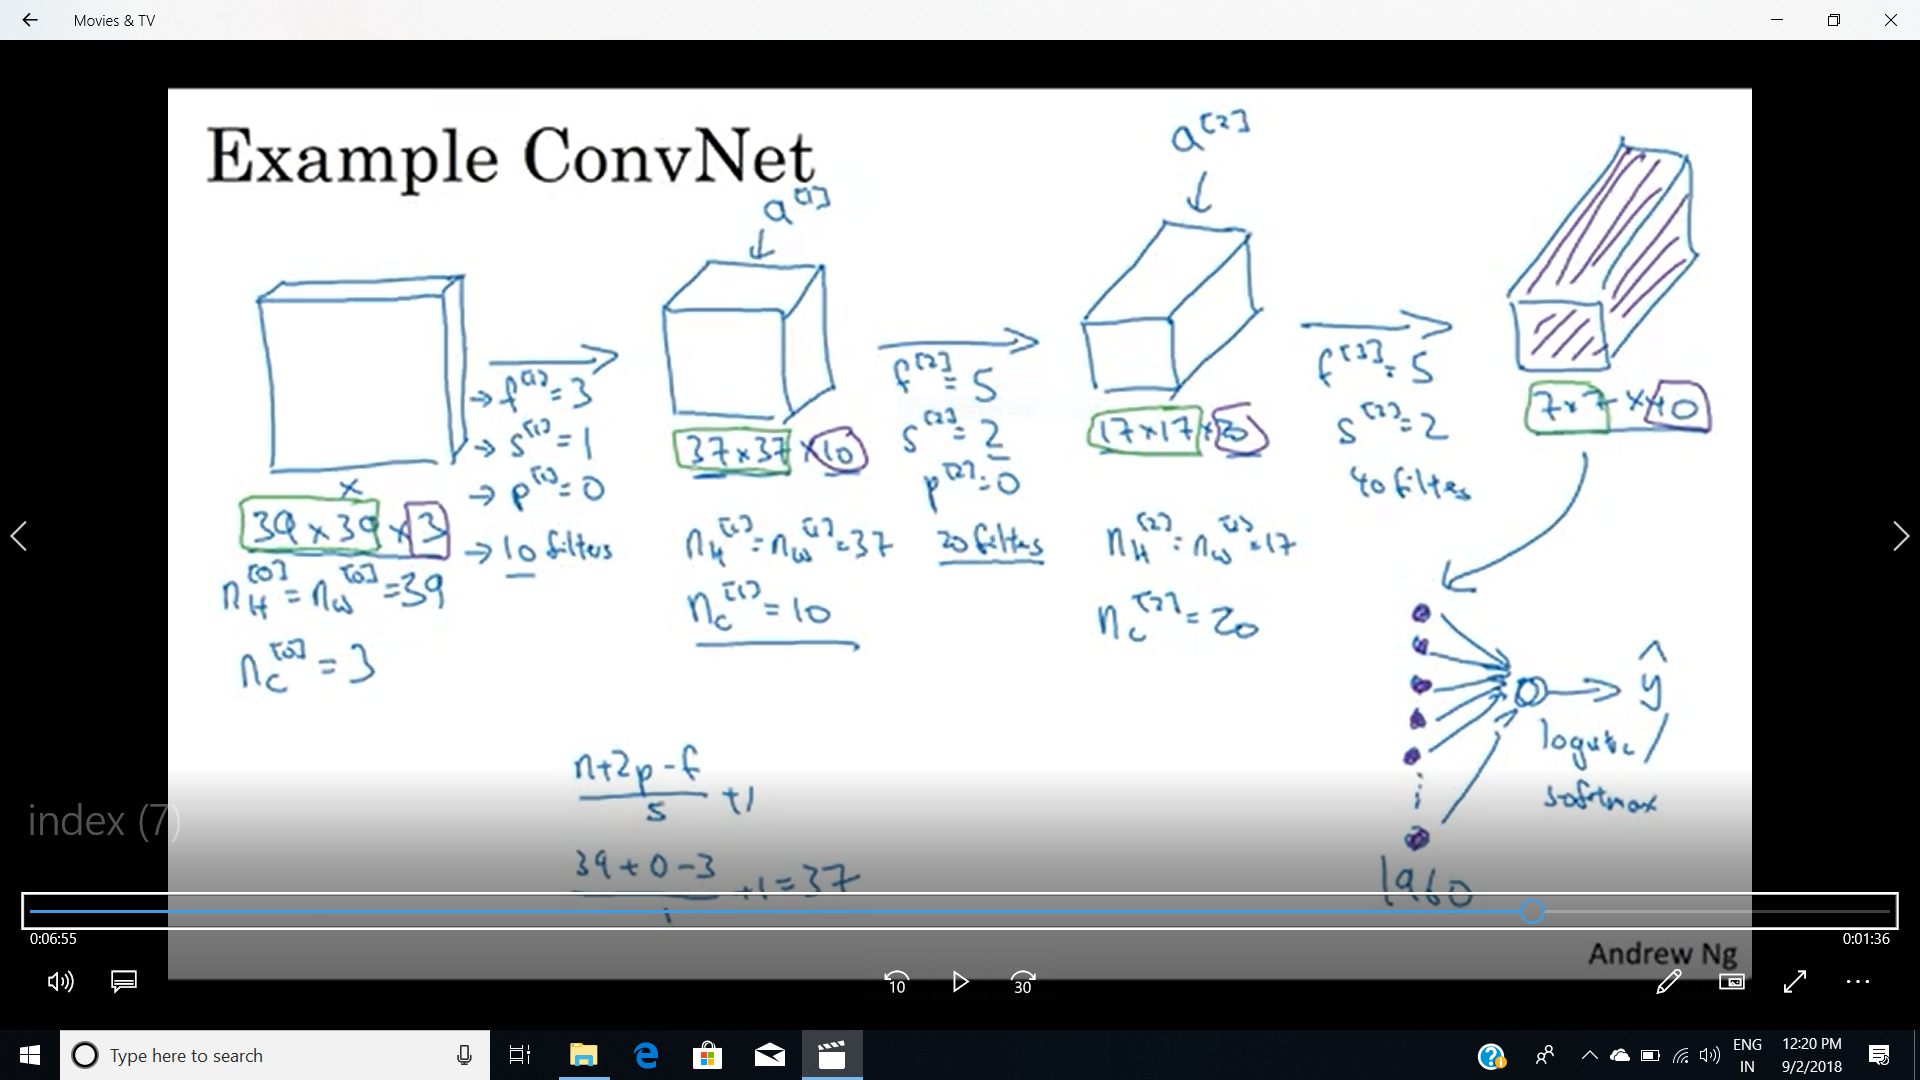 Movies & TV
Example ConvNet
a[1]
a[2]
f[1] = 3
s[1] = 1
p[1] = 0
10 filters
x
39 x 39 x 3
nH[0] = nW[0] = 39
nC[0] = 3
37 x 37 x 10
nH[1] = nW[1] = 37
nC[1] = 10
f[2] = 5
s[2] = 2
p[2] = 0
20 filters
17 x 17 x 20
nH[2] = nW[2] = 17
nC[2] = 20
f[3] = 5
s[3] = 2
40 filters
7 x 7 x 40
ŷ
logistic /
softmax
1960
n+2p-f
s
+1
39 + 0 - 3
1
+1 = 37
index (7)
0:06:55
0:01:36
Andrew Ng
10
30
Type here to search
ENG
IN
12:20 PM
9/2/2018